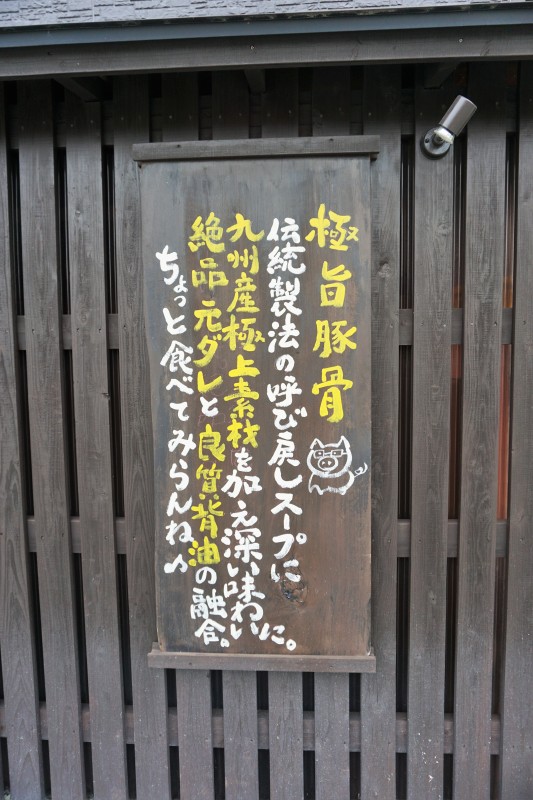 極旨豚骨
伝統製法の呼び戻しスープに
九州産極上素材を加え深い味わいに。
絶品元ダレと良質背油の融合。
ちょっと食べてみらんね♪